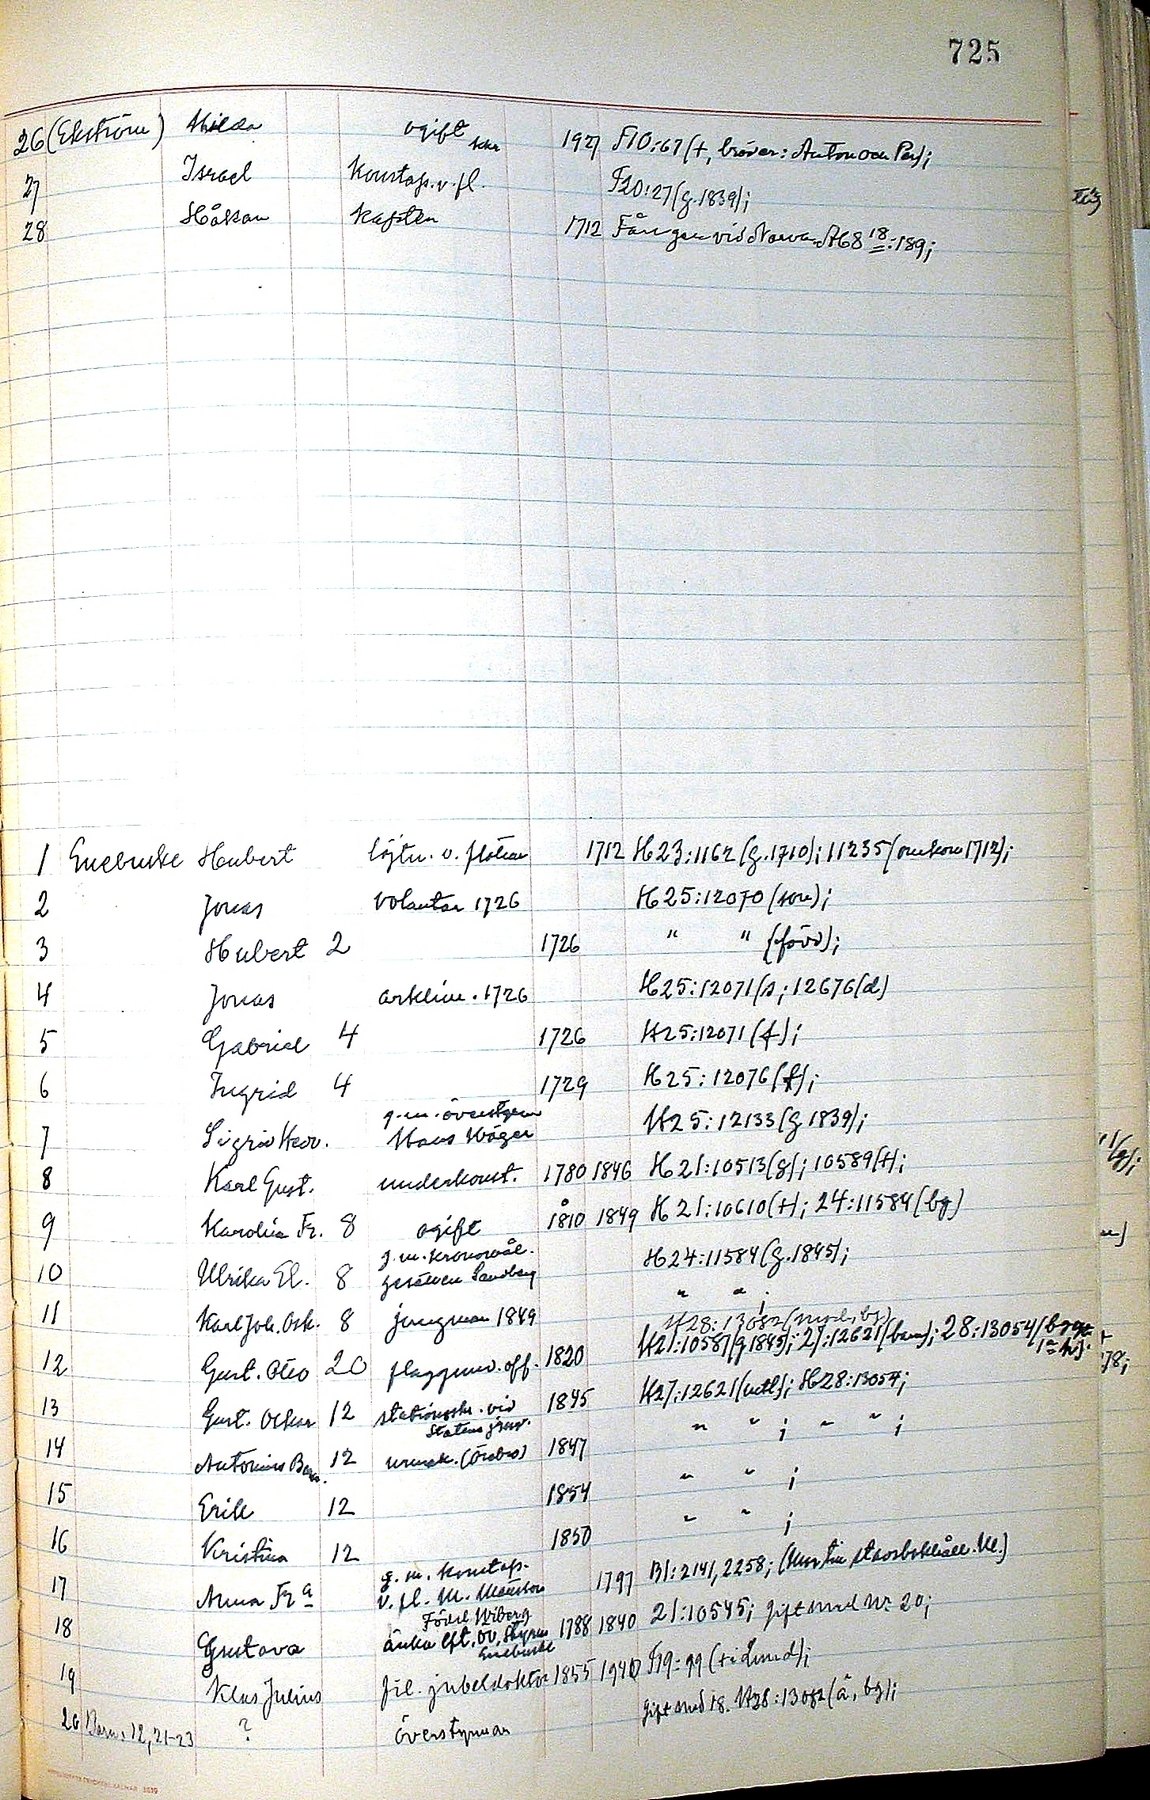 725
26 (Ekström) Hilda ogift 1927 F10:67 (+, bröder: Anton och Per);
27 Israel Konstap. v. fl. F20:27 (g. 1839);
28 Håkan Kapten 1712 Fången vid Narva H68 18:189;
1 Enebuske Hubert löjtn. v. flottan 1712 H23:1162 (g. 1710); 11235 (1712);
2 Jonas volontär 1726 H25:12070 (son);
3 Hubert 2 1726 " " (född);
4 Jonas arklim. 1726 H25:12071 (s; 12676 (d)
5 Gabriel 4 1726 H25:12071 (f);
6 Ingrid 4 1729 H25:12076 (f);
7 Sigrid Hedv. g.m. överstyrm Hans Häger H25:12133 (g 1839);
8 Karl Gust. underkonst. 1780 1846 H21:10513 (g); 10589 (+);
9 Karolin Fr. 8 ogift 1810 1849 H21:10610 (+); 24:11584 (bg)
10 Ulrika El. 8 g.m. kronovål. Sandberg H24:11584 (g. 1845);
11 Karl Joh. Osk. 8 jungman 1849 " " ;
H28:13082 (bg)
12 Gust. Otto 20 flaggund. off. 1820 H21:10587 (g 1845); 27:12621 (barn); 28:13054
13 Gust. Oskar 12 stationsskr. vid Statens järnv. 1845 H27:12621 (utfl); H28:13054;
14 Antonius 12 urmak. (Örebro) 1847 " " ; " " ;
15 Erik 12 1854 " " ;
16 Kristina 12 1850 " " ;
17 Anna Fr a g.m. konstap. v. fl. M. 1797 B1:2141, 2258;
18 Gustava Född Wiberg änka eft. öv. styrm Enebuske 1788 1840 21:10545; gift med Nr. 20;
19 Klas Julius fil. jubeldoktor 1855 1940 F19:99 (+ i Lund);
20 Barn: 12, 21-23 ? överstyrman gift med 18. H28:13082 (ä, bg);